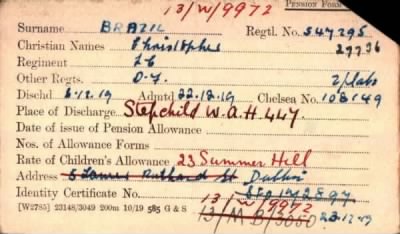 13/W/9972 PENSION FORM
Surname BRAZIL Regtl. No. 547295
Christian Names Christopher 29776
Regiment L C
Other Regts. 2/Labs
Dischd 6.12.19 Admtd 22.12.19 Chelsea No. 108149
Place of Discharge Stepchild W.O.H. 447.
Date of issue of Pension Allowance
Nos. of Allowance Forms
Rate of Children's Allowance 23 Summer Hill
Address 5 James St Dublin
Identity Certificate No. 13/W/9972
[W2785] 23148/3049 200m 10/19 585 G & S 13/M B/5000 23.12.19